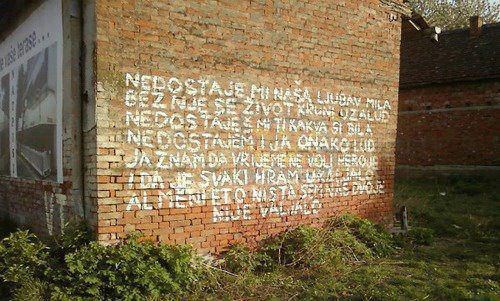 e vaše terase...
NEDOSTAJE MI NAŠA LJUBAV MILA
BEZ NJE SE ŽIVOT KRUNI UZALUD
NEDOSTAJEŠ MI TI KAKVA SI BILA
NEDOSTAJEM I JA ONAKO LUD
JA ZNAM DA VRIJEME NE VOLI HEROJE
I DA JE SVAKI HRAM UKALJALO
AL MENI ETO NIŠTA SEM NAS DVOJE
NIJE VALJALO